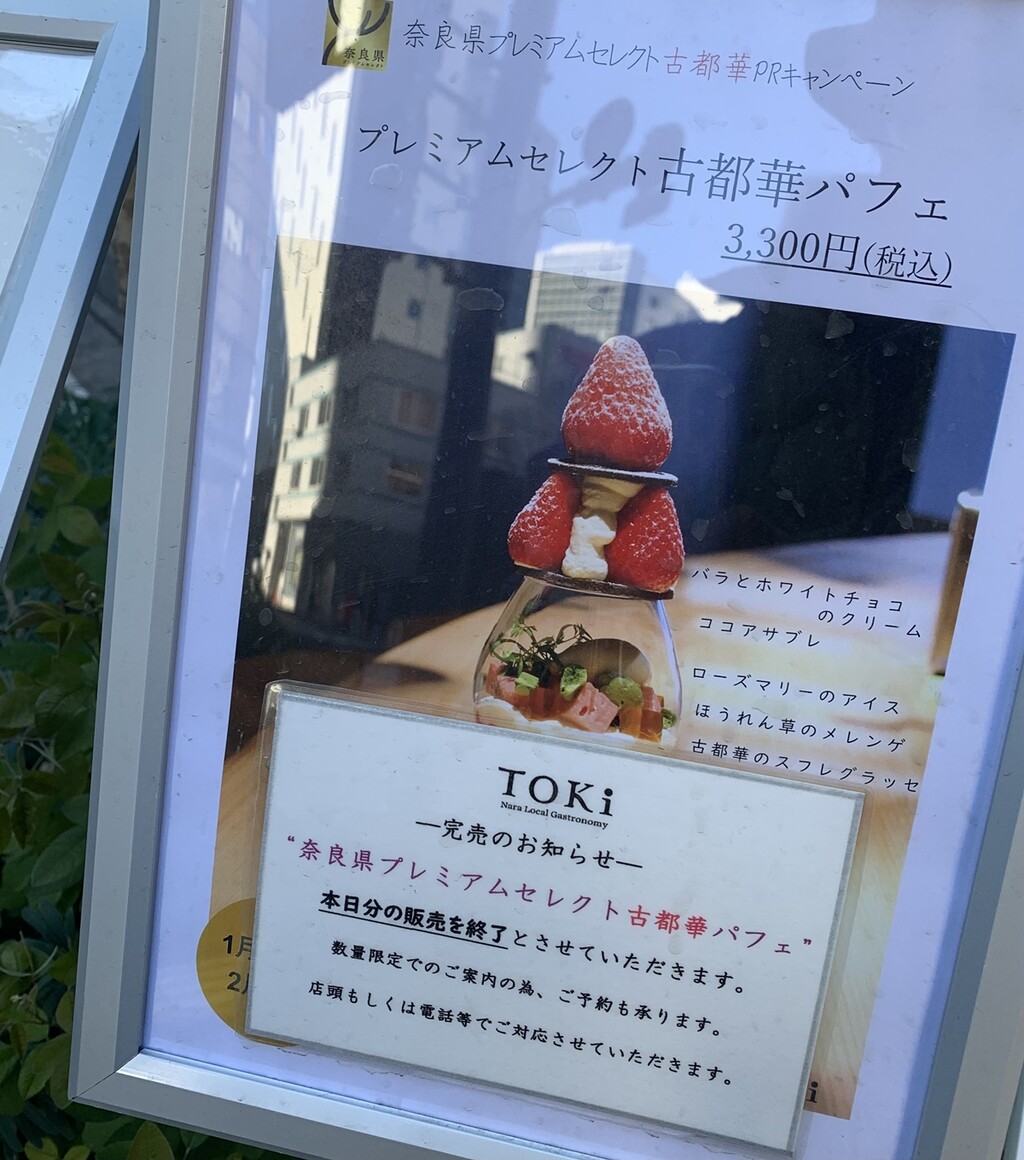 奈良県
奈良県プレミアムセレクト古都華PRキャンペーン
プレミアムセレクト古都華パフェ
3,300円(税込)
バラとホワイトチョコ
のクリーム
ココアサブレ
ローズマリーのアイス
ほうれん草のメレンゲ
古都華のスフレグラッセ
TOKi
Nara Local Gastronomy
―完売のお知らせ―
“奈良県プレミアムセレクト古都華パフェ”
本日分の販売を終了とさせていただきます。
数量限定でのご案内の為、ご予約も承ります。
店頭もしくは電話等でご対応させていただきます。
1月
2月